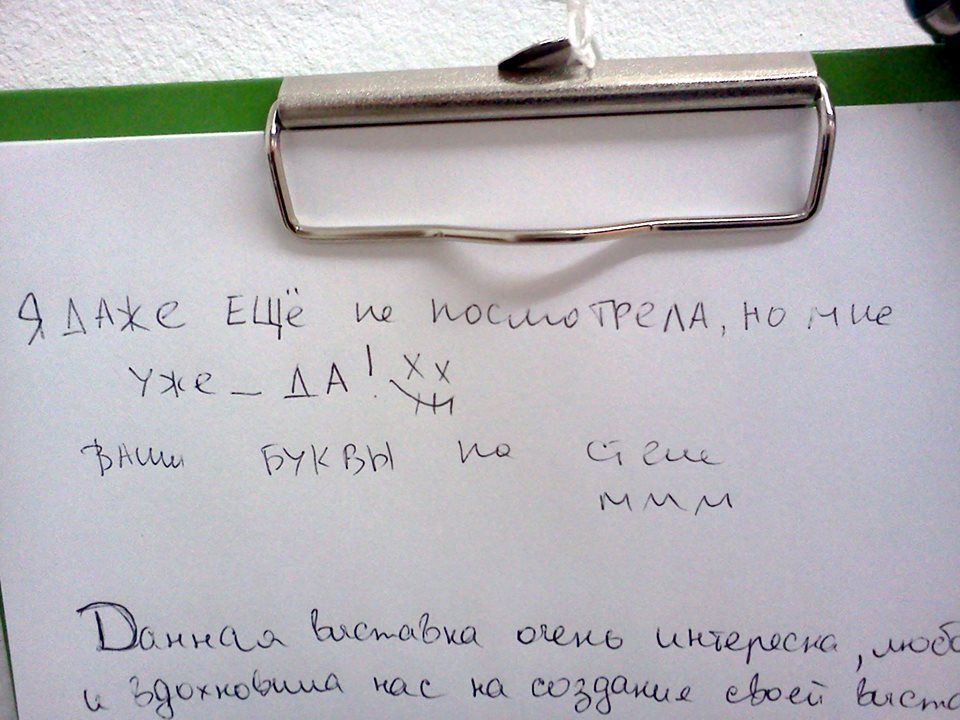 Я ДАЖЕ ЕЩЁ не посмотрела, но мне
уже – ДА!
ВАШИ БУКВЫ на стене
ммм
Данная выставка очень интересна, любо
и вдохновила нас на создание своей выста